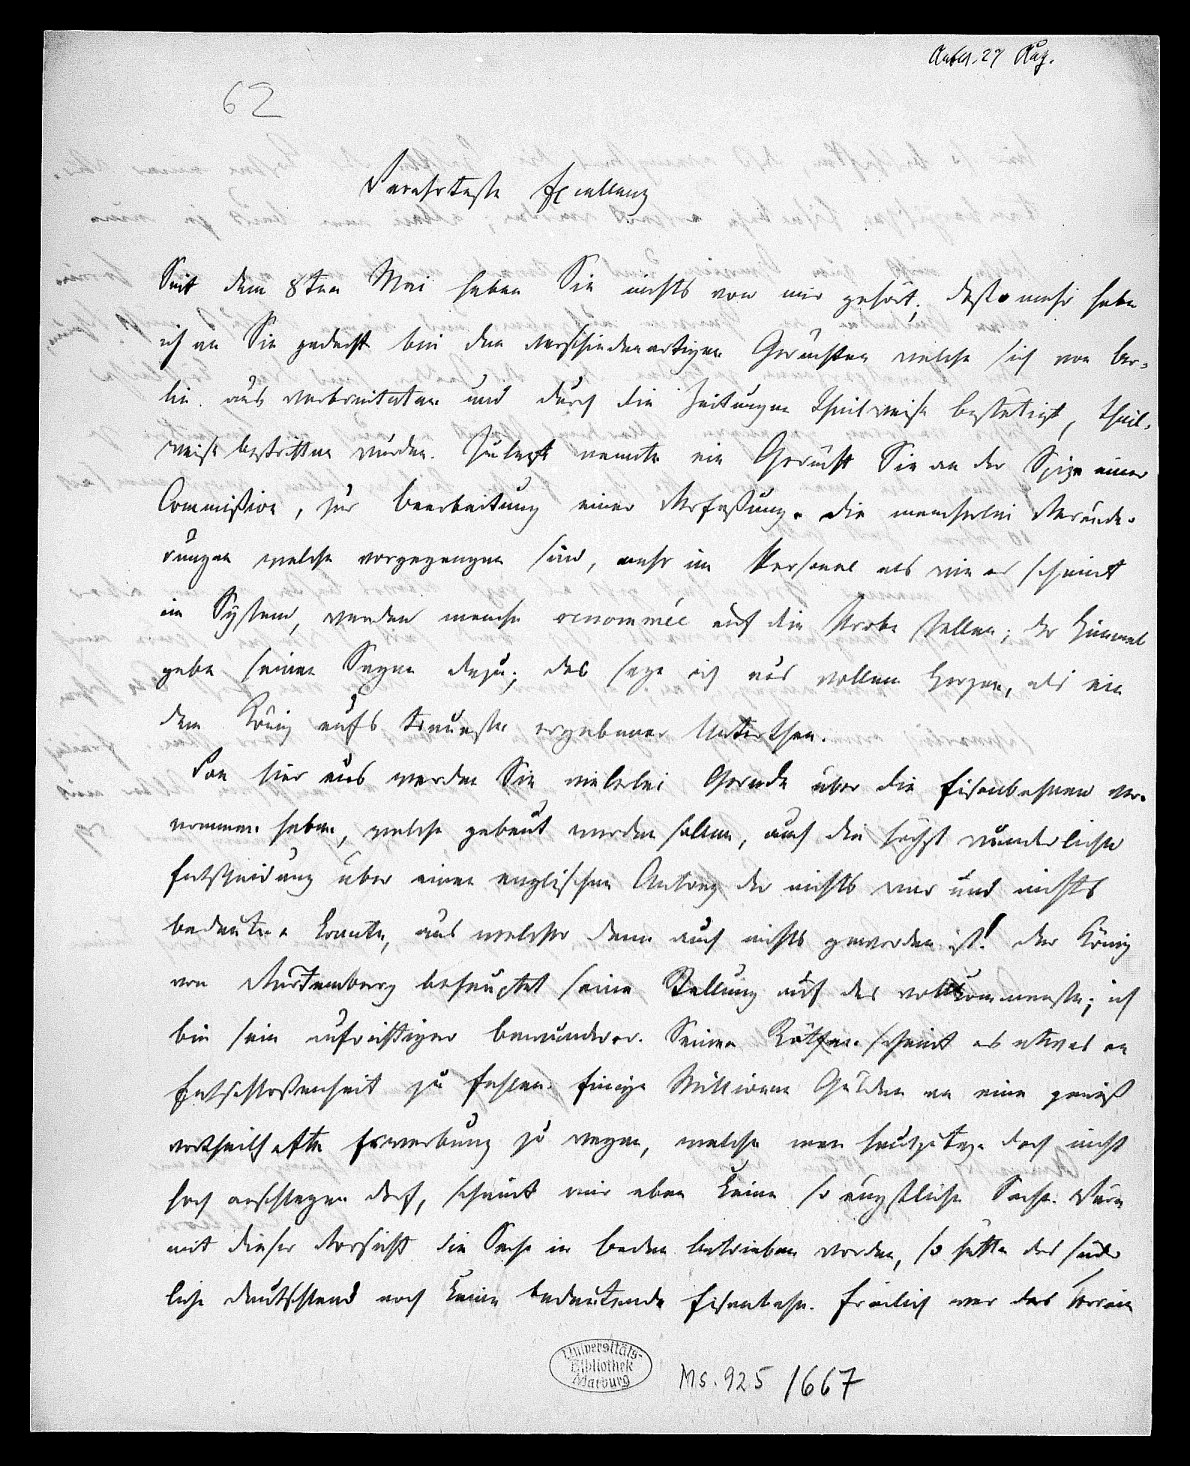 Antw. 27 Aug.
62
Verehrteste Excellenz
Seit dem 8ten Mai haben Sie nichts von mir gehört; desto mehr habe
ich an Sie gedacht bei den verschiedenartigen Gerüchten welche sich von Ber-
lin aus verbreiteten und durch die Zeitungen theilweise bestätigt, theil-
weise bestritten wurden. Zuletzt nannte ein Gerücht Sie an der Spize einer
Commißion, zur Bearbeitung einer Verfaßung. Die mancherlei Verände-
rungen welche vorgegangen sind, mehr im Personal als wie es scheint
im System, werden manche renommée auf die Probe stellen; der Himmel
gebe seinen Segen dazu; das sage ich aus vollem Herzen, als ein
dem König aufs treueste ergebener Unterthan.
Von hier aus werden Sie vielerlei Gerede über die Eisenbahnen ver-
nommen haben, welche gebaut werden sollen, auch die höchst wunderliche
Entscheidung über einen englischen Antrag der nichts war und nichts
bedeuten konnte, aus welcher denn auch nichts geworden ist! Der König
von Würtemberg behauptet seine Stellung auf das vollkommenste; ich
bin sein aufrichtiger Bewunderer. Seinen Räthen scheint es etwas an
Entschloßenheit zu fehlen. Einige Millionen Gulden an eine gewiß
vortheilhafte Erwerbung zu wagen, welche man heutzutage doch nicht
hoch anschlagen darf, scheint mir eben keine so ängstliche Sache. Wäre
mit dieser Vorsicht die Sache in Baden betrieben worden, so hätte das süd-
liche Deutschland noch keine bedeutende Eisenbahn. Freilich war das Terrain
Universitäts-
Bibliothek
Marburg
Ms. 925/667